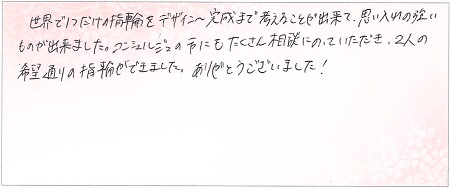 世界で1つだけの指輪をデザイン～完成まで考えることが出来て、思い入れの強い
ものが出来ました。コンシェルジュの方にもたくさん相談にのっていただき、2人の
希望通りの指輪ができました。ありがとうございました!